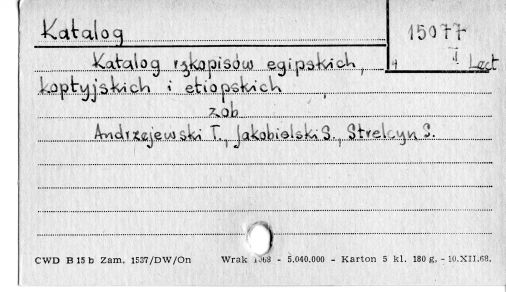 Katalog
15077
II Lect
Katalog rzkopisów egipskich,
koptyjskich i etiopskich
zob.
Andrzejewski T., Jakobielski S., Strelcyn S.
CWD B 15 b Zam. 1537/DW/On Wrak 1968 - 5.040.000 - Karton 5 kl. 180 g. - 10.XII.68.